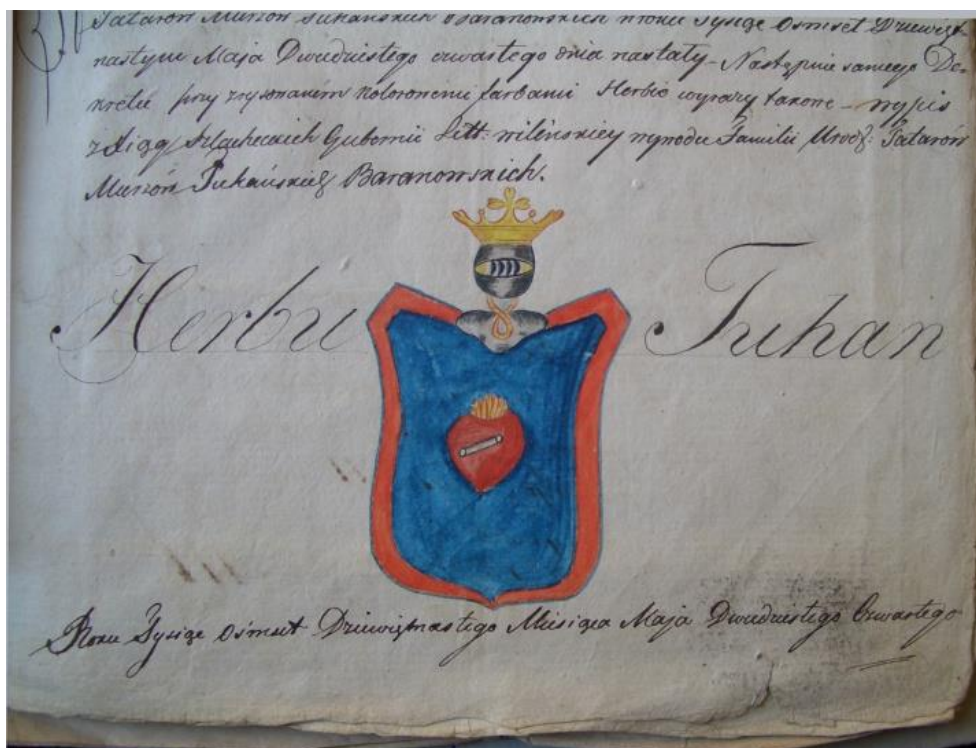 Tatarow Murzow Tuhanskich Baranowskich w roku Tysiąc Osmset Dziewięt-
nastym Maja Dwudziestego czwartego dnia nastały – Następnie samego De-
kretu przy zrysowanem kolorowemi farbami Herbie wyrazy takowe – wypis
z Xiąg Szlacheckich Gubernii Litt: wilenskiey wywodu Familii Urodz: Tatarów
Murzów Tuhańskich Baranowskich.
Herbu Tuhan
Roku Tysiąc Ośmset Dziewiętnastego Miesiąca Maja Dwudziestego Czwartego